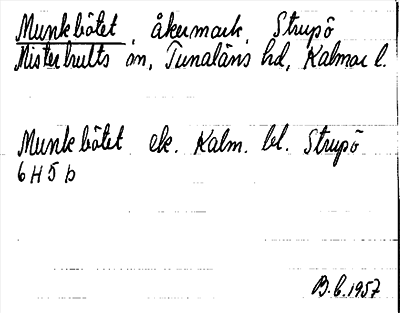 Munkbötet, åkermark, Strupö
Misterhults sn, Tunaläns hd, Kalmar l.
Munkbötet ek. Kalm. bl. Strupö
6H5b
B.b.1957